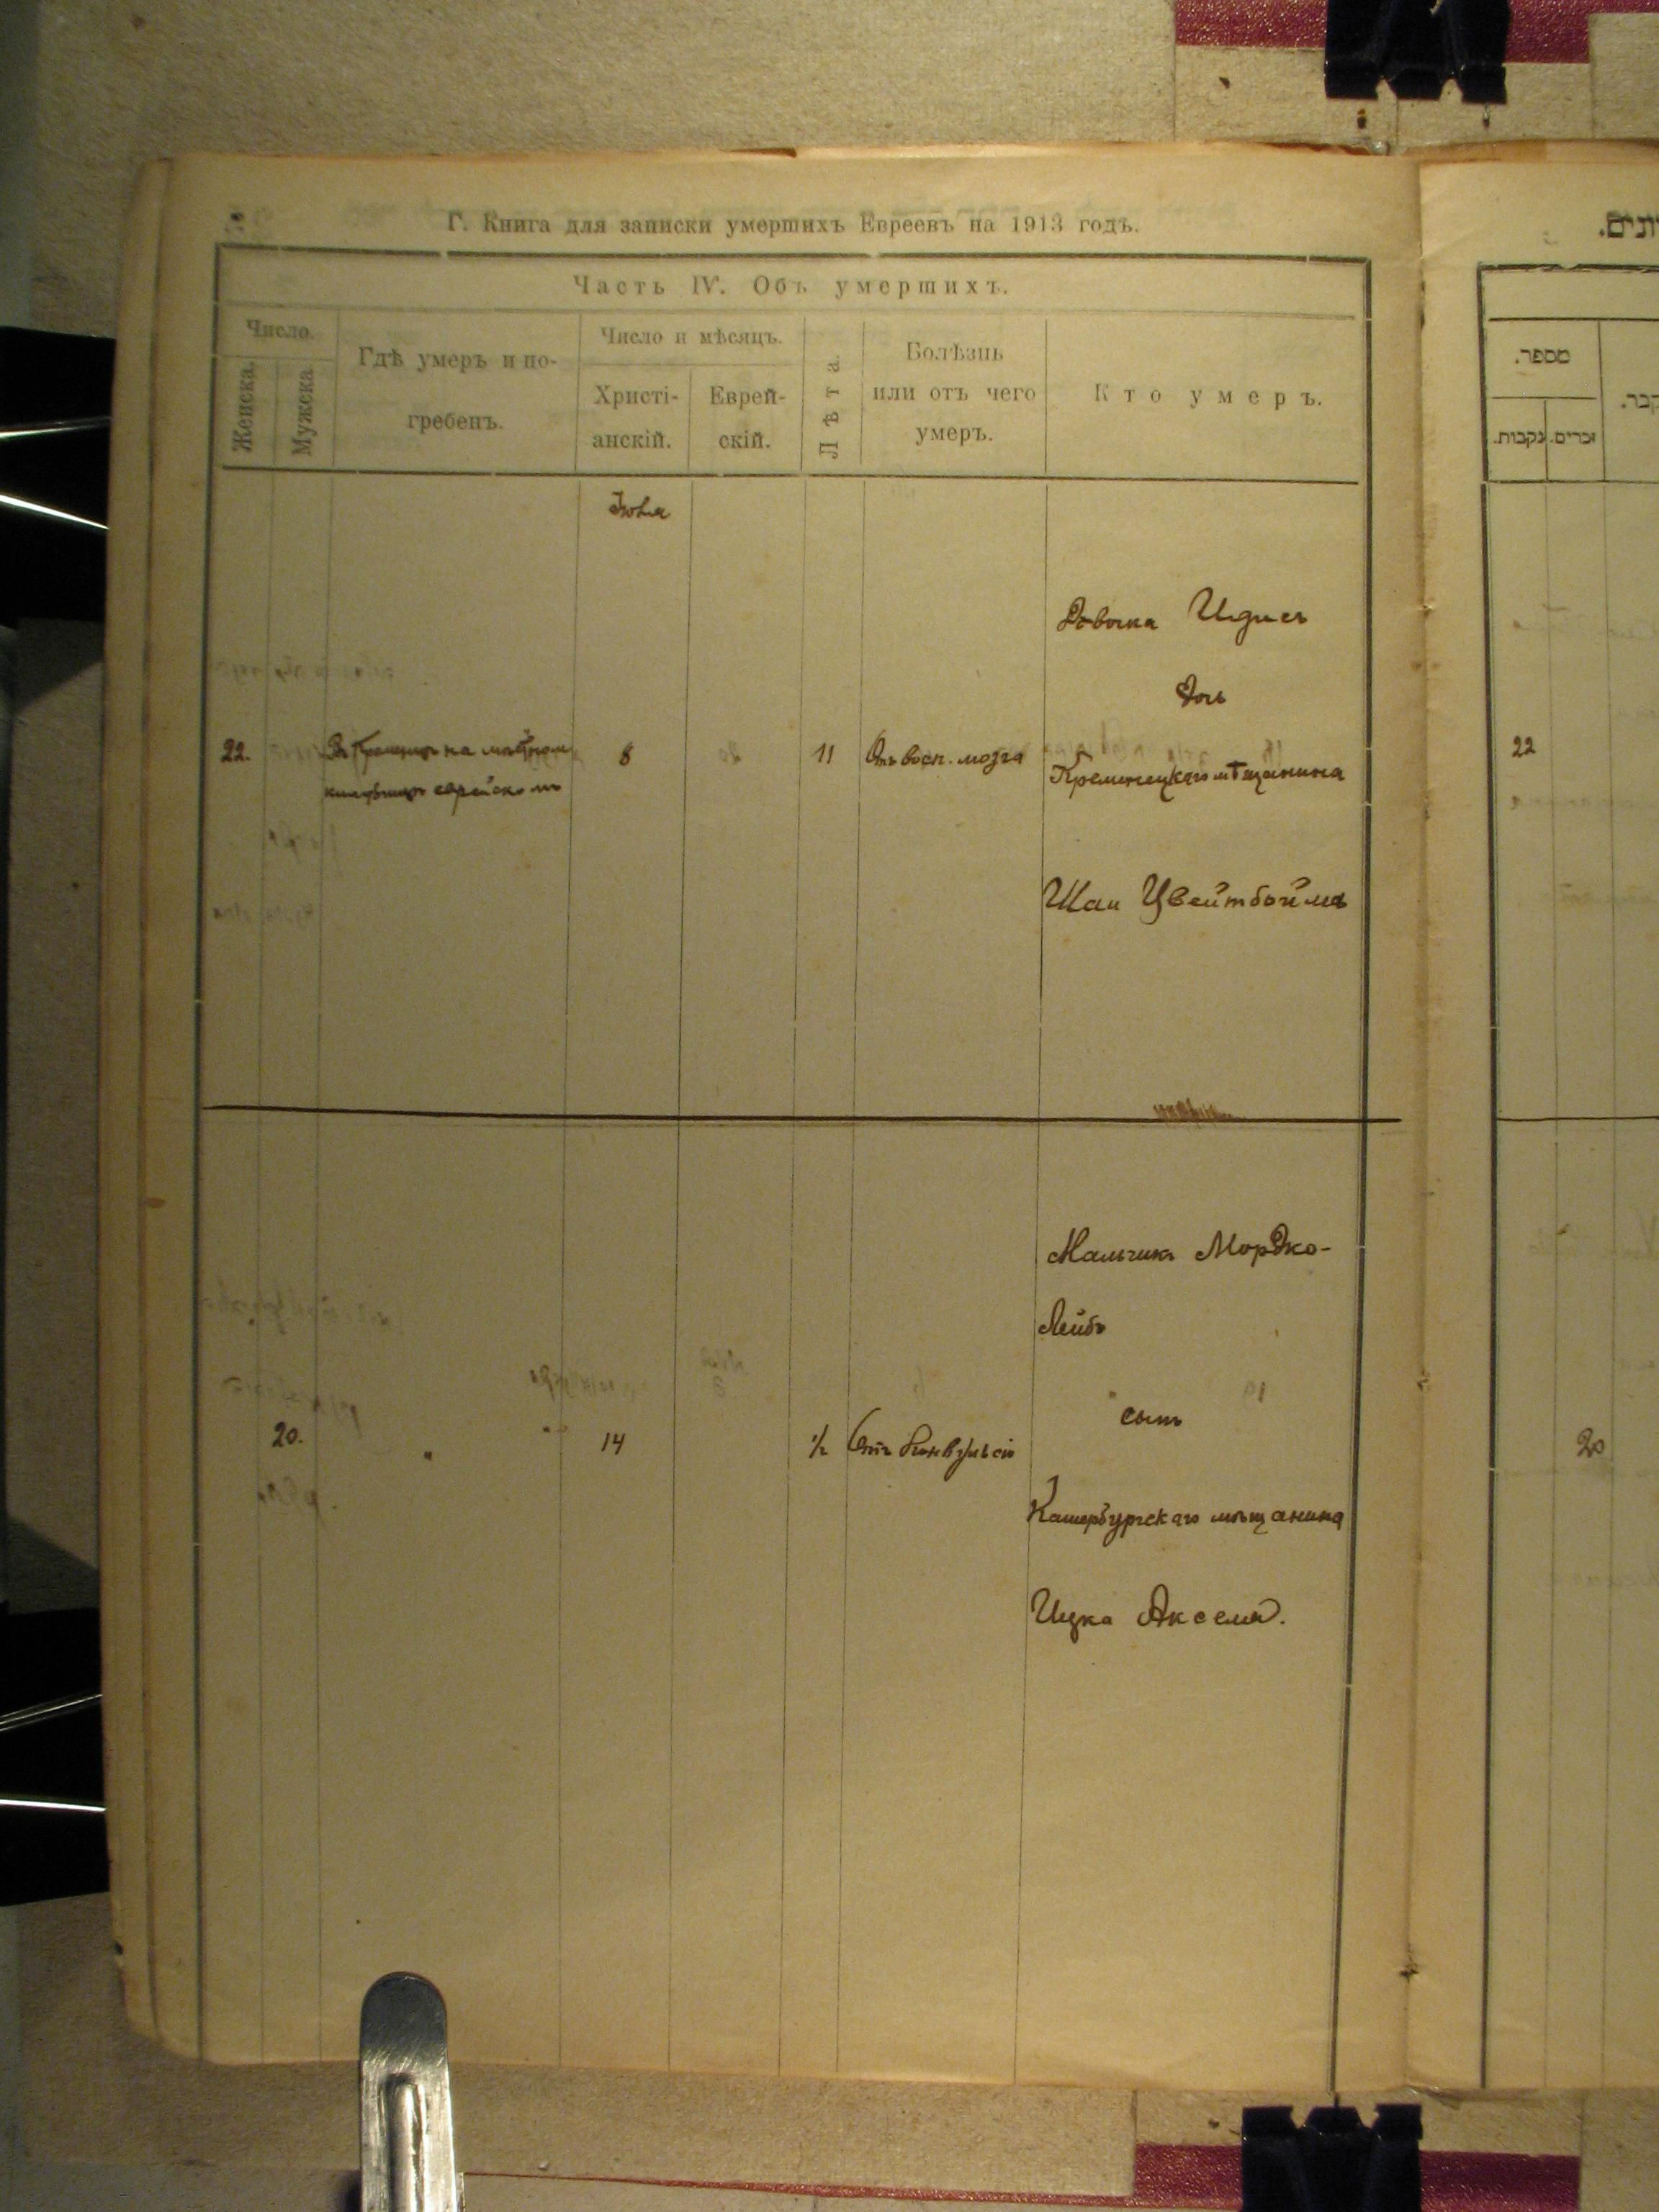 Г. Книга для записки умершихъ Евреевъ на 1913 годъ.
Часть IV. Объ умершихъ.
Число.
Женска.
Мужска.
Гдѣ умеръ и по-
гребенъ.
Число и мѣсяцъ.
Христі-
анскій.
Еврей-
скій.
Лѣта.
Болѣзнь
или отъ чего
умеръ.
Кто умеръ.
Іюля
22.
на мѣстном
еврейскомъ
8
11
Отъ восп. мозга
Девочка Идись
дочь
Кременецкаго мѣщанина
Шаи Цвейтбойма
20.
"
14
1/2
Отъ Конвульсій
Мальчикъ Мордко-
Лейбъ
сынъ
Катербургскаго мѣщанина
Ицка Акселя.
מספר.
זכרים.
נקבות.
22
20